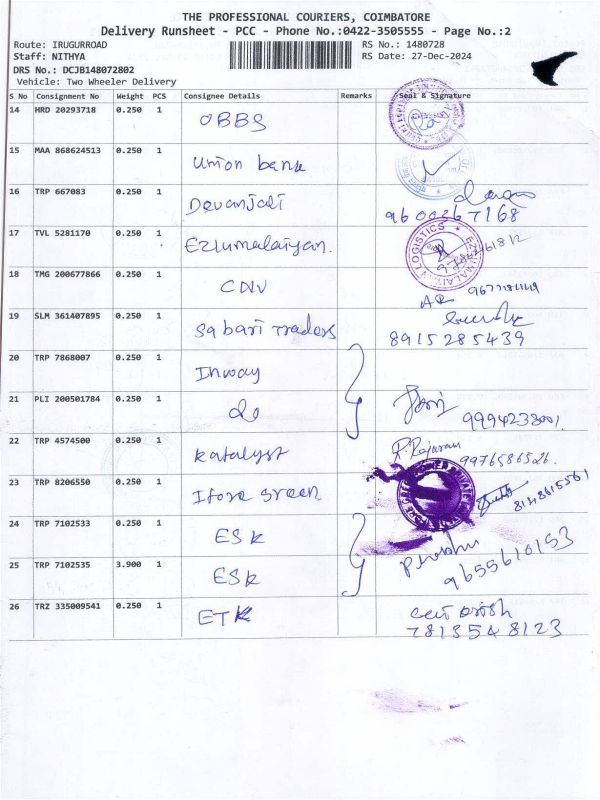 THE PROFESSIONAL COURIERS, COIMBATORE
Delivery Runsheet - PCC - Phone No.:0422-3505555 - Page No.:2
Route: IRUGURROAD RS No.: 1480728
Staff: NITHYA RS Date: 27-Dec-2024
DRS No.: DCJB148072802
Vehicle: Two Wheeler Delivery
S No Consignment No Weight PCS Consignee Details Remarks Seal & Signature
14 HRD 20293718 0.250 1 OBBS
15 MAA 868624513 0.250 1 Union bank
16 TRP 667083 0.250 1 Devanjali
9600367168
17 TVL 5281170 0.250 1 Ezlumalaiyan.
LOGISTICS
18 TMG 200677866 0.250 1 CNV
19 SLM 361407895 0.250 1 Sabari traders
8915285439
20 TRP 7868007 0.250 1 Inway
21 PLI 200501784 0.250 1 do
Hari 9994238001
22 TRP 4574500 0.250 1 Katalyst R. Rajaram
9976586526
23 TRP 8206550 0.250 1 Ifore green
8148615561
24 TRP 7102533 0.250 1 ESK
Prabhu
25 TRP 7102535 3.900 1 ESK 9655610153
26 TRZ 335009541 0.250 1 ETK
7813548123